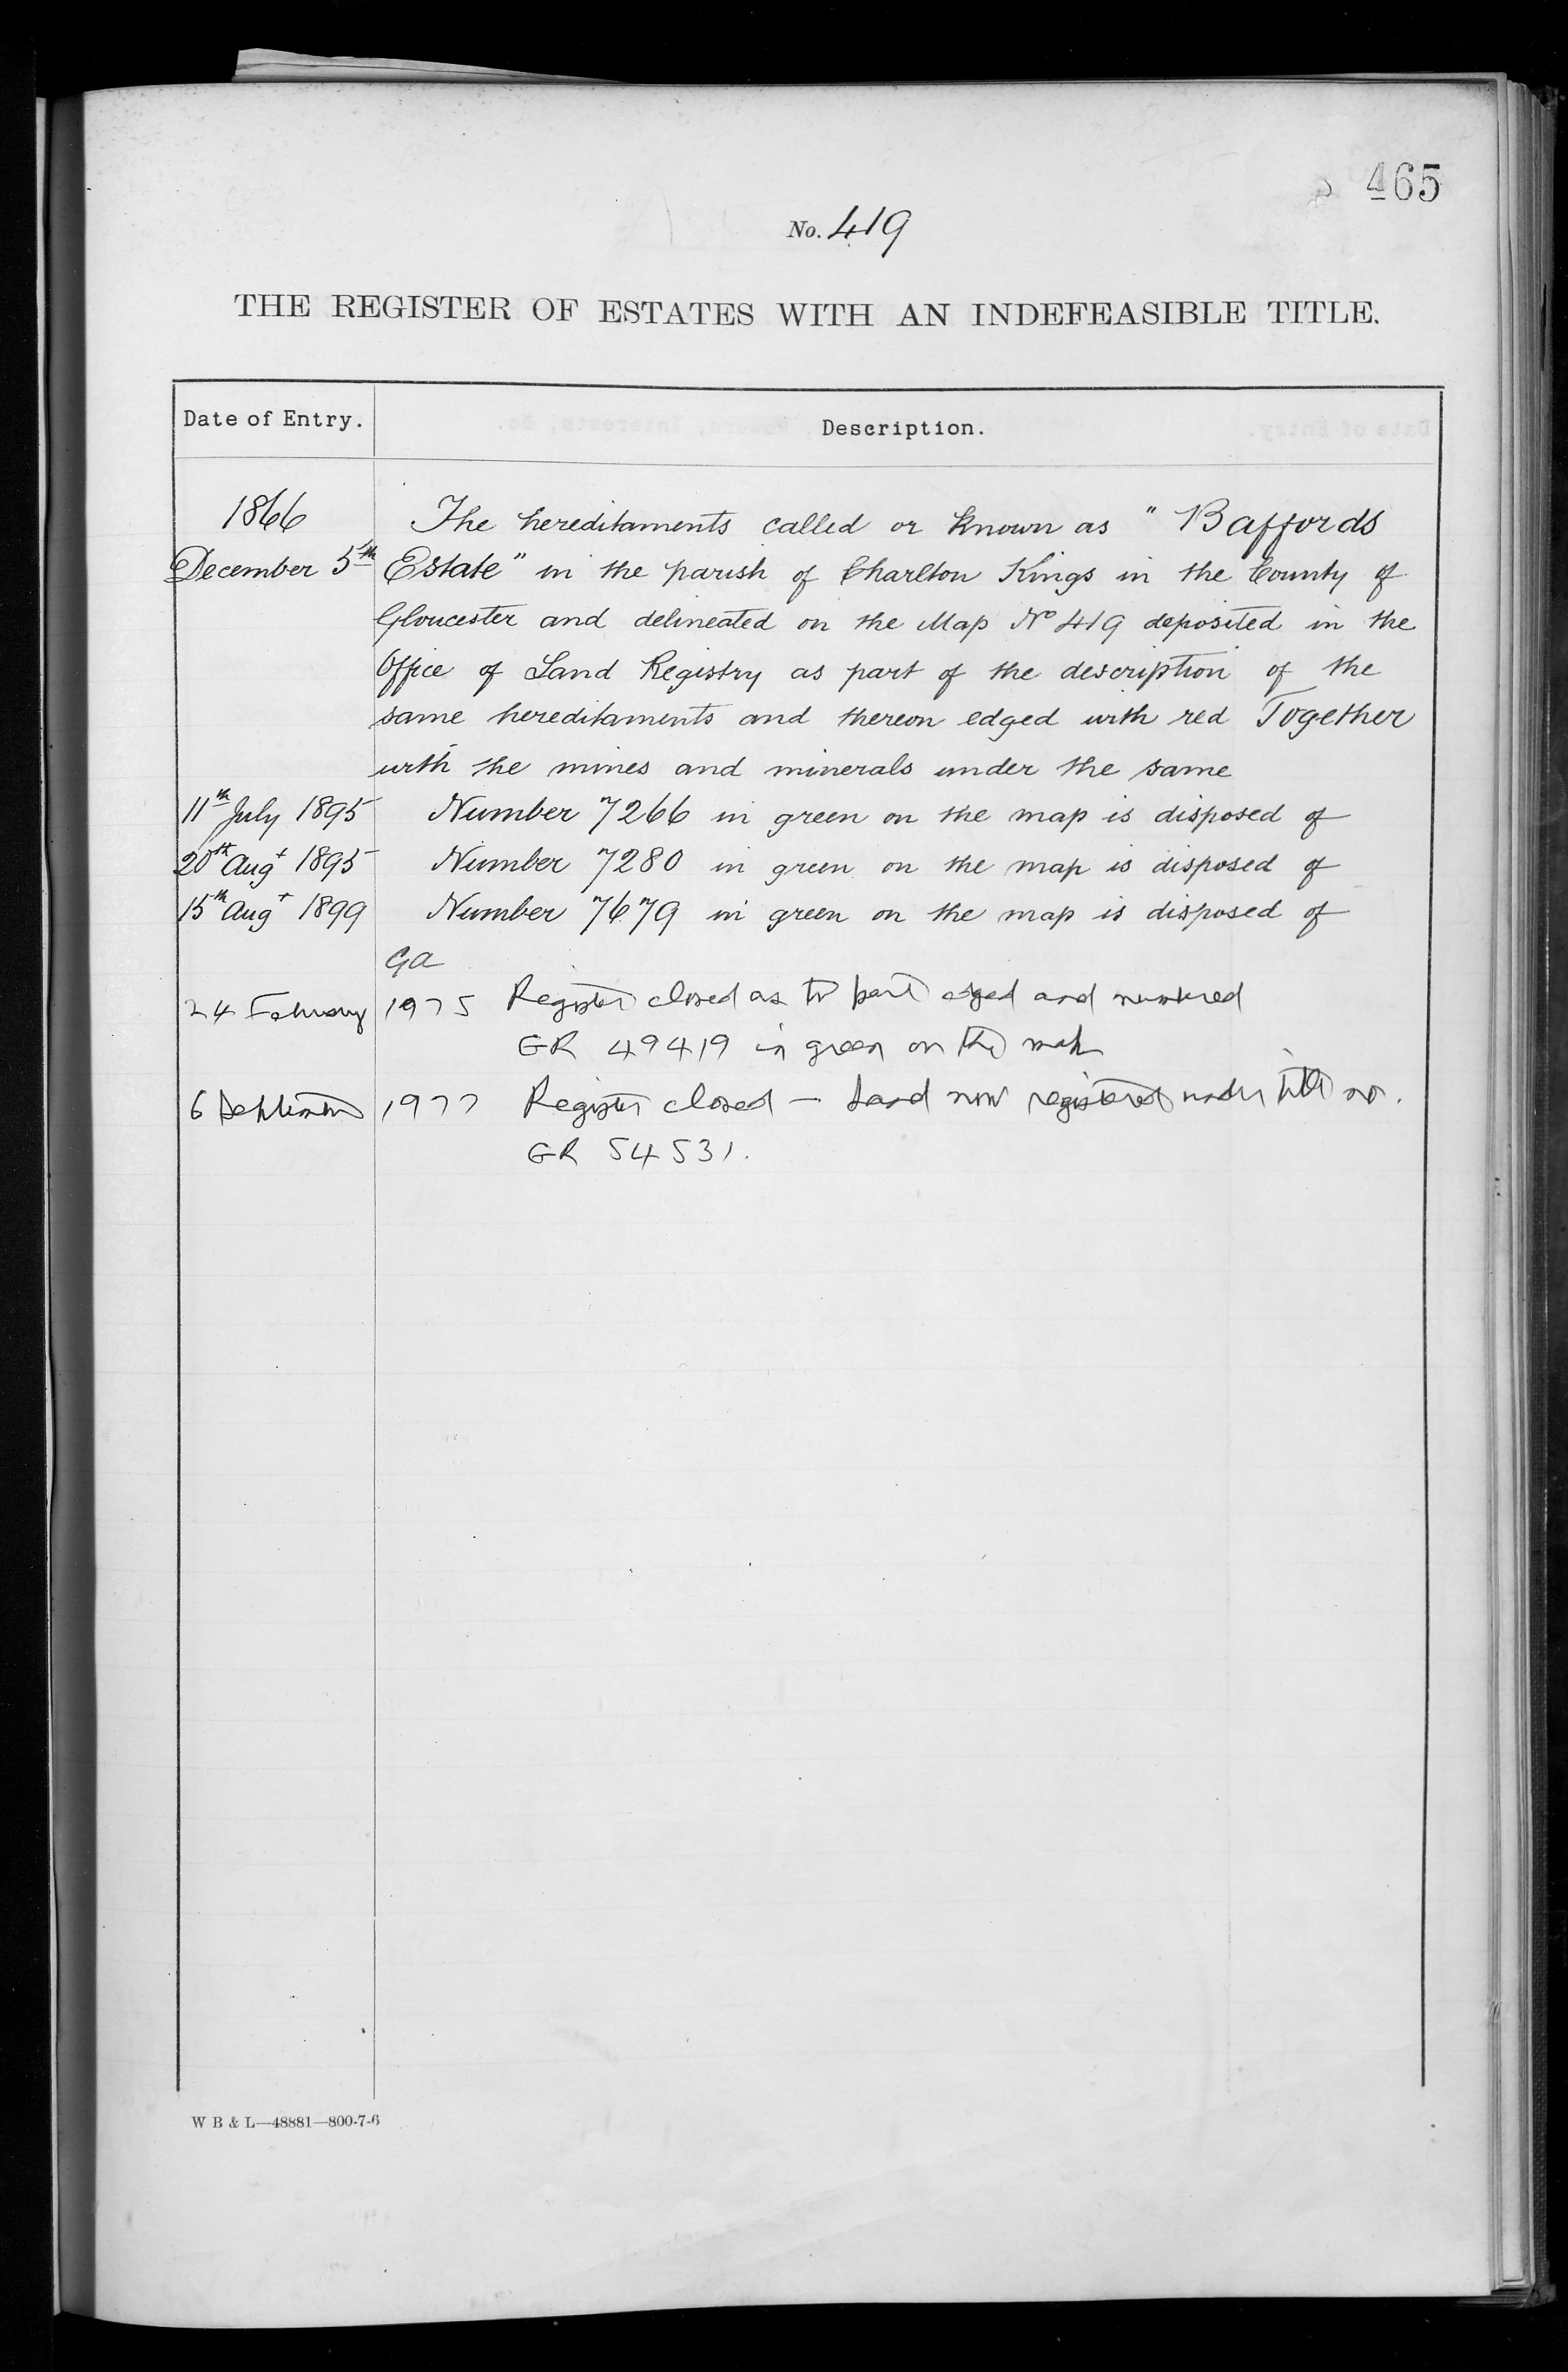 465
No. 419
THE REGISTER OF ESTATES WITH AN INDEFEASIBLE TITLE.
Date of Entry. Description.
1866 The hereditaments called or known as "Baffords
December 5th Estate" in the parish of Charlton Kings in the County of
Gloucester and delineated on the Map No 419 deposited in the
Office of Land Registry as part of the description of the
same hereditaments and thereon edged with red Together
with the mines and minerals under the same
11th July 1895 Number 7266 in green on the map is disposed of
20th Augt 1895 Number 7280 in green on the map is disposed of
15th Augt 1899 Number 7679 in green on the map is disposed of
Ga
24 February 1975 Register closed as to part edged and numbered
GR 49419 in green on the map
6 September 1977 Register closed - Land now registered under title no.
GR 54531.
W B & L—48881—800-7-6